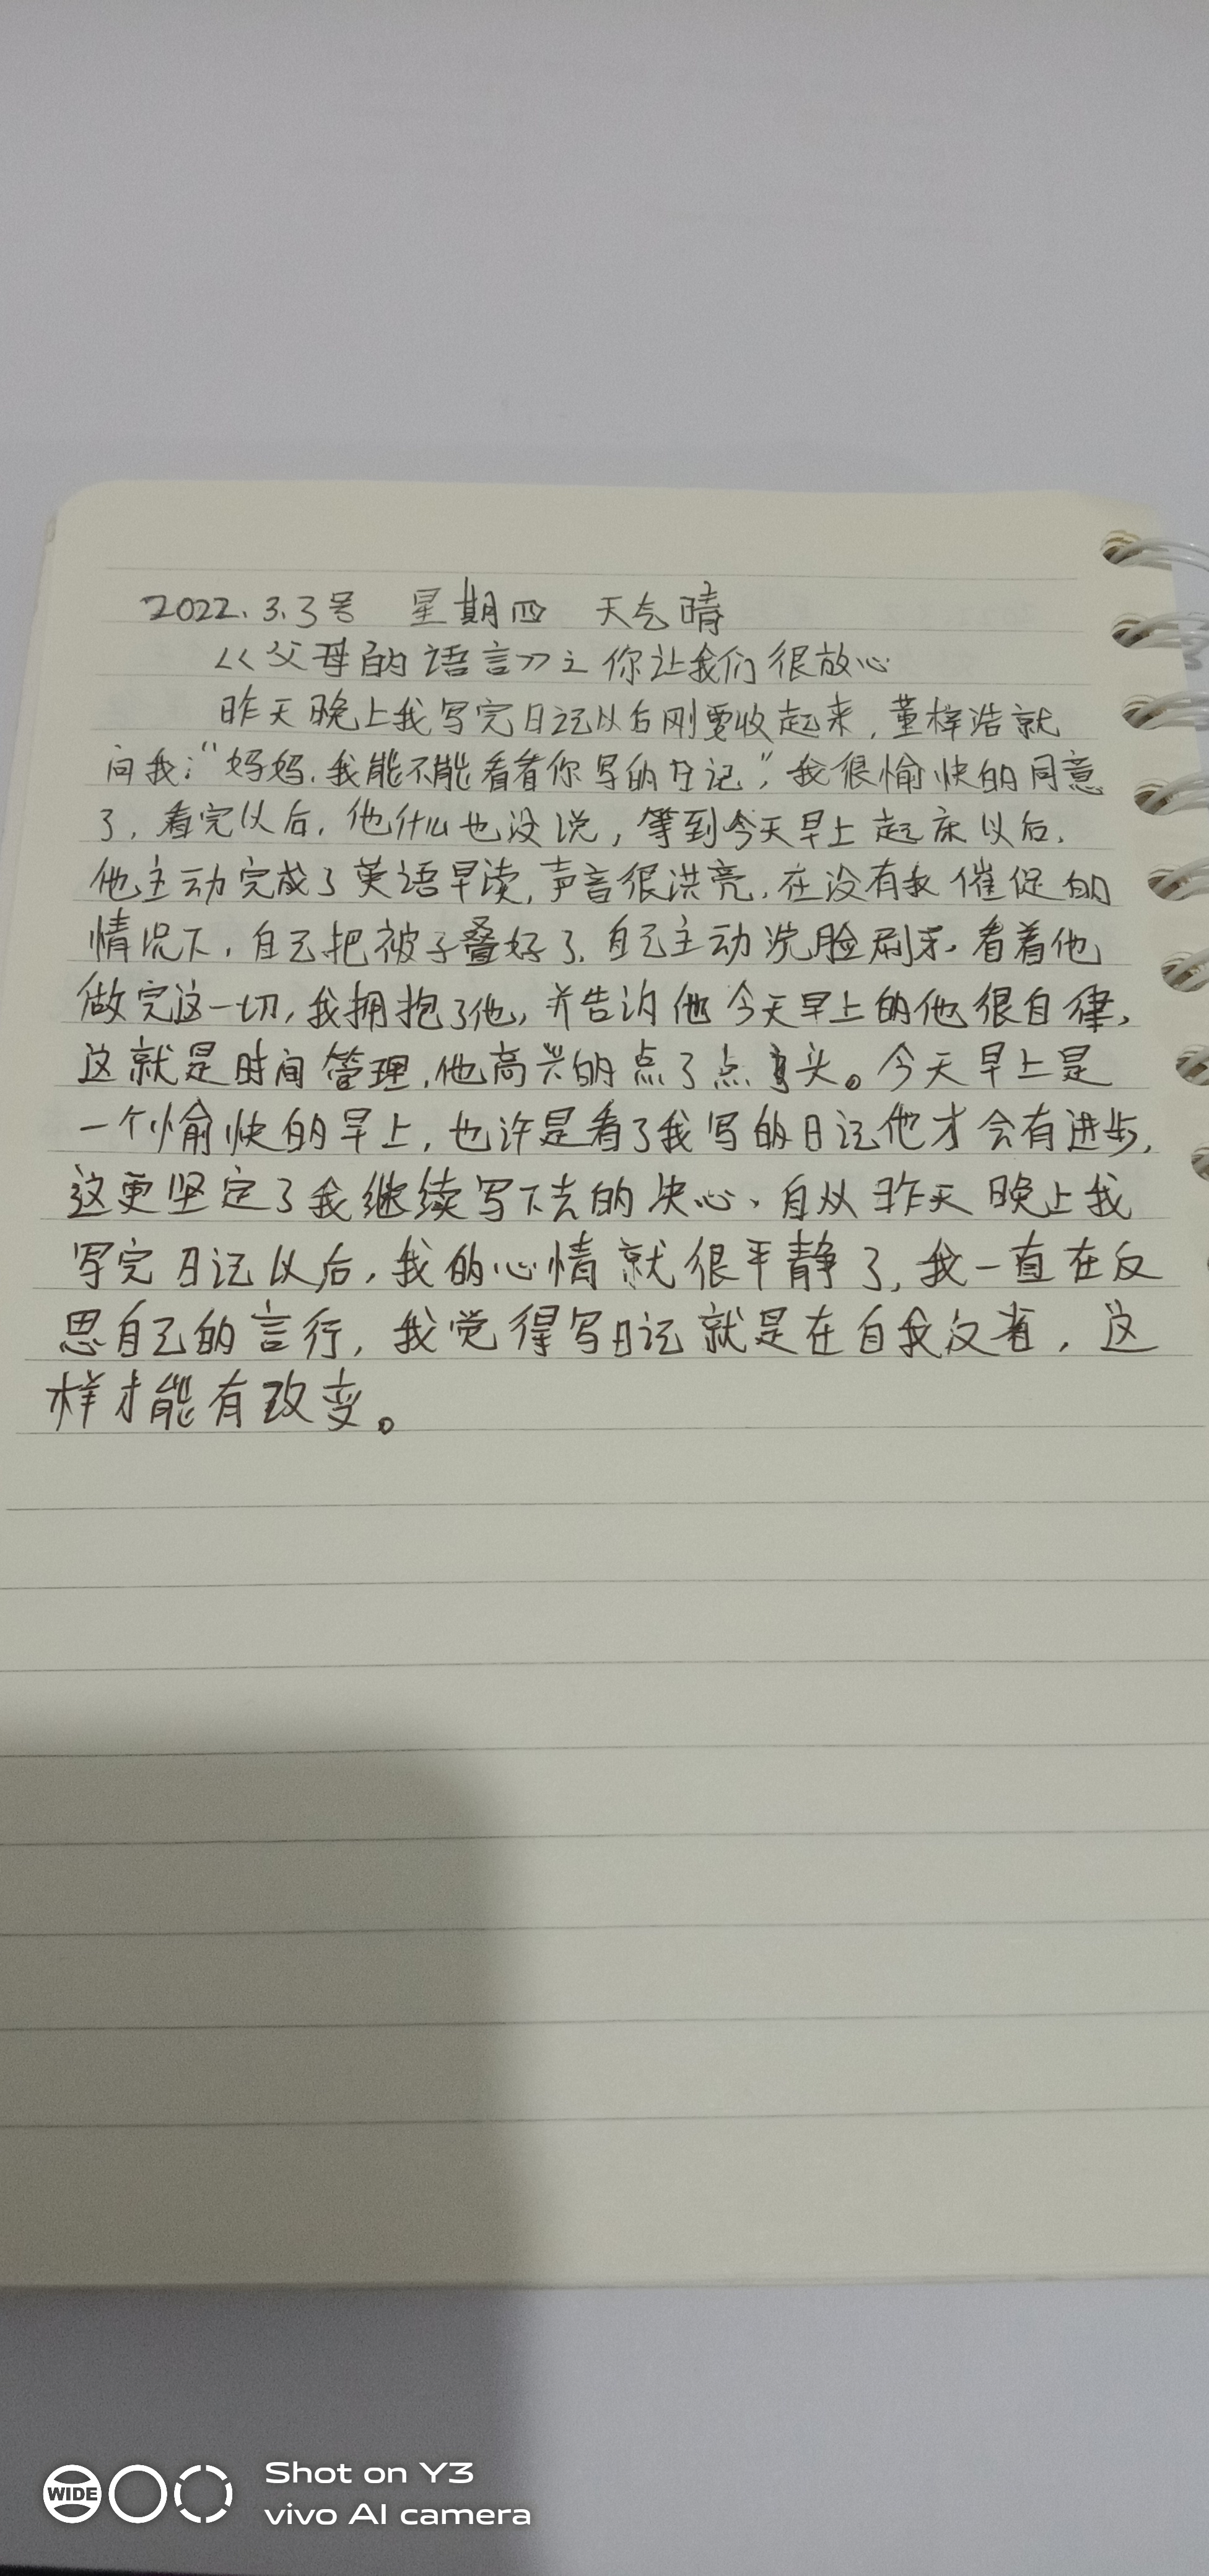 2022.3.3号 星期四 天气晴
<<父母的语言>>之你让我们很放心
昨天晚上我写完日记以后刚要收起来,董梓浩就
问我:“妈妈,我能不能看看你写的日记”,我很愉快的同意
了,看完以后,他什么也没说,等到今天早上起床以后,
他主动完成了英语早读,声音很洪亮,在没有我催促的
情况下,自己把被子叠好了,自己主动洗脸刷牙,看着他
做完这一切,我拥抱了他,并告诉他今天早上的他很自律,
这就是时间管理,他高兴的点了点头。今天早上是
一个愉快的早上,也许是看了我写的日记他才会有进步,
这更坚定了我继续写下去的决心、自从昨天晚上我
写完日记以后,我的心情就很平静了,我一直在反
思自己的言行,我觉得写日记就是在自我反省,这
样才能有改变。
WIDE
Shot on Y3
vivo AI camera